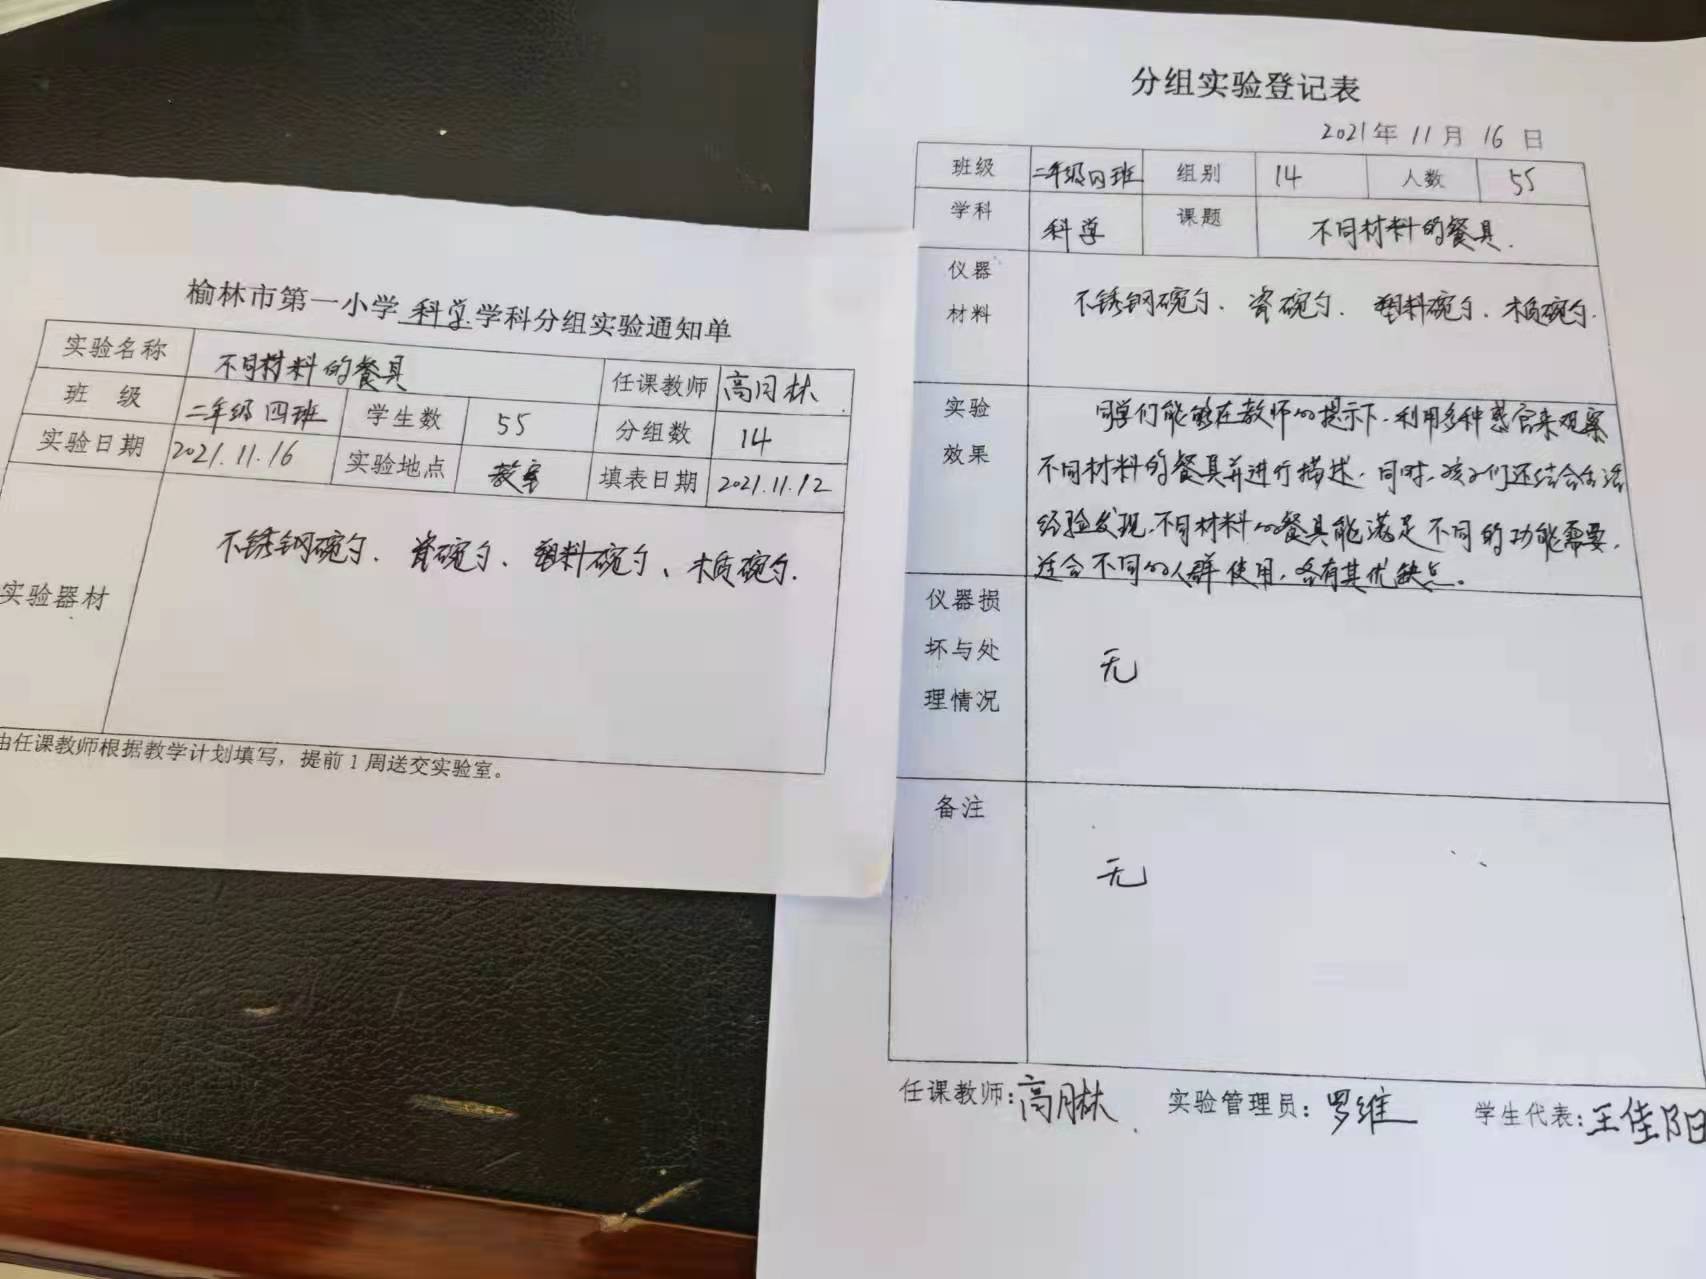 榆林市第一小学 科学 学科分组实验通知单
实验名称 不同材料的餐具 任课教师 高月林
班 级 二年级四班 学生数 55 分组数 14
实验日期 2021.11.16 实验地点 教室 填表日期 2021.11.12
实验器材 不锈钢碗勺、瓷碗勺、塑料碗勺、木质碗勺.
由任课教师根据教学计划填写，提前1周送交实验室。
分组实验登记表
2021年 11月 16日
班级 二年级四班 组别 14 人数 55
学科 科学 课题 不同材料的餐具.
仪器
材料
不锈钢碗勺、瓷碗勺、塑料碗勺、木质碗勺.
实验
效果
同学们能够在教师的提示下,利用多种感官来观察
不同材料的餐具并进行描述,同时,孩子们还结合生活
经验发现,不同材料的餐具能满足不同的功能需要,
适合不同的人群使用,各有其优缺点。
仪器损
坏与处
理情况
无
备注
无
任课教师:高月林 实验管理员:罗维 学生代表:王佳阳